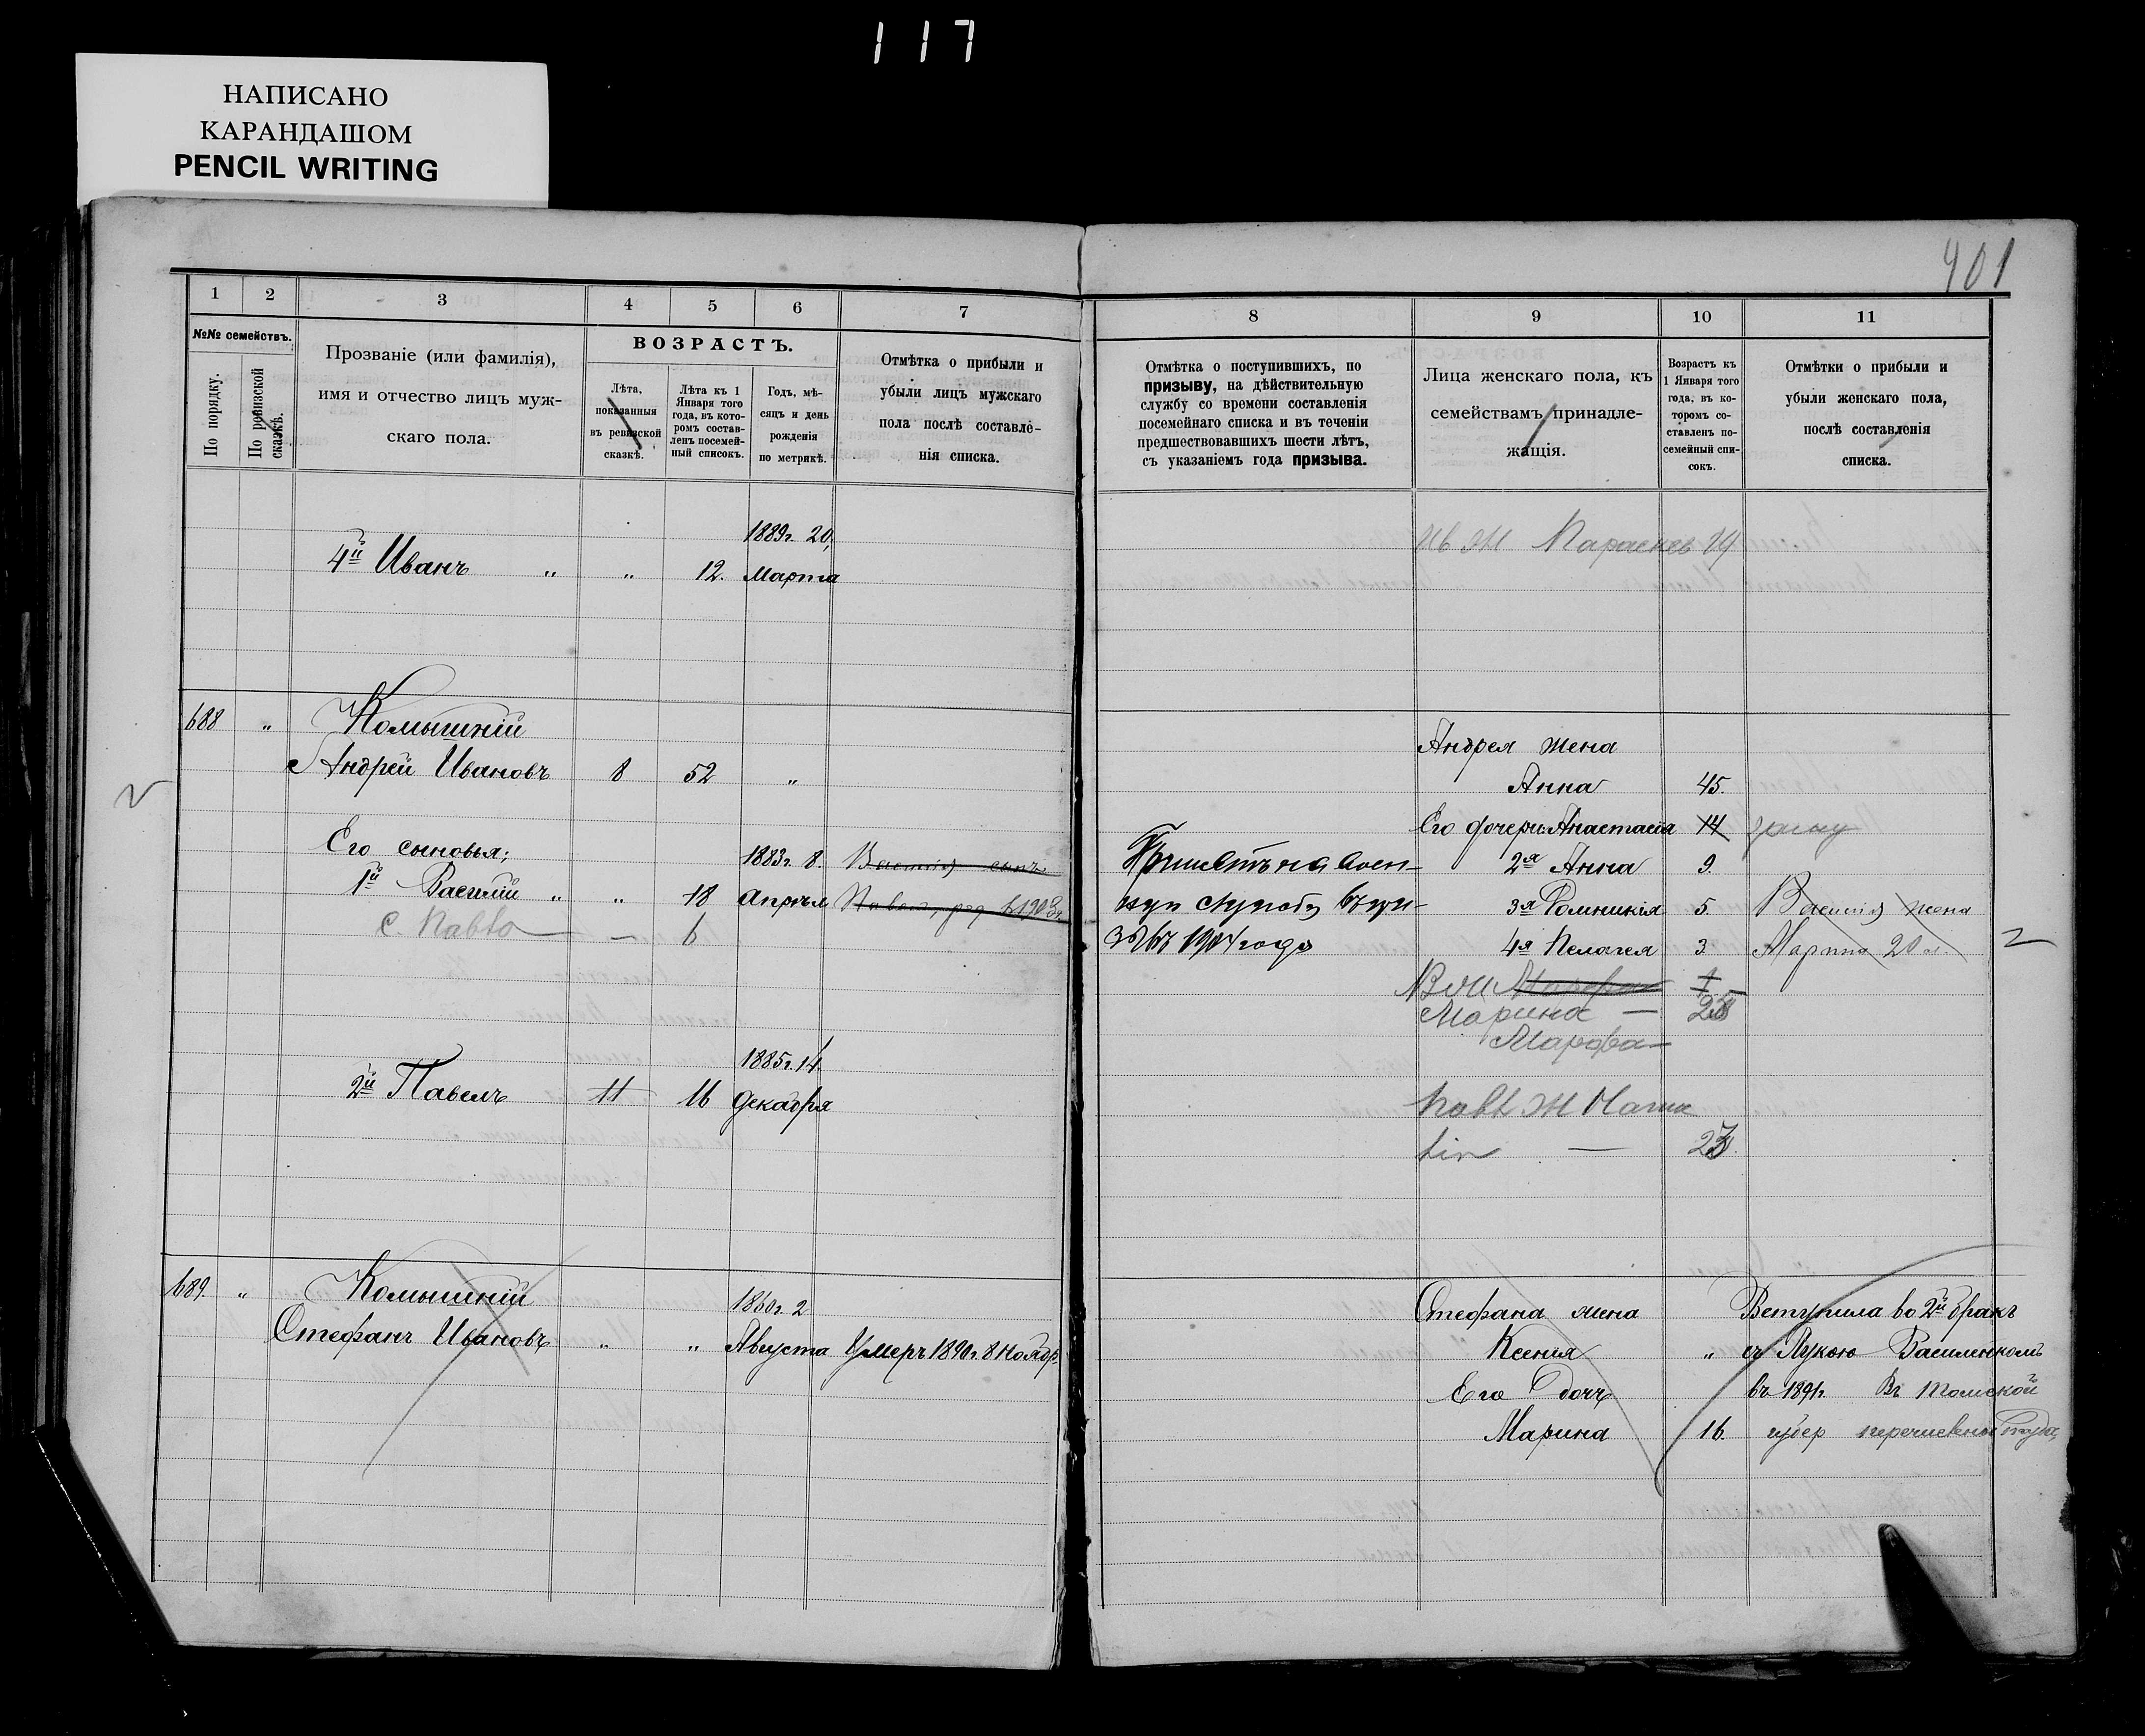 117
НАПИСАНО
КАРАНДАШОМ
PENCIL WRITING
401
1 2 3 4 5 6 7
№№ семействъ.
По порядку.
По ревизской сказкѣ.
Прозваніе (или фамилія),
имя и отчество лицъ муж-
скаго пола.
ВОЗРАСТЪ.
Лѣта,
показанныя
въ ревизской
сказкѣ.
Лѣта къ 1
Января того
года, въ кото-
ромъ состав-
ленъ посемей-
ный списокъ.
Годъ, мѣ-
сяцъ и день
рожденія
по метрикѣ.
Отмѣтка о прибыли и
убыли лицъ мужскаго
пола послѣ составле-
нія списка.
8 9 10 11
Отмѣтка о поступившихъ, по
призыву, на дѣйствительную
службу со времени составленія
посемейнаго списка и въ теченіи
предшествовавшихъ шести лѣтъ,
съ указаніемъ года призыва.
Лица женскаго пола, къ
семействамъ принадле-
жащія.
Возрастъ къ
1 Января того
года, въ ко-
торомъ со-
ставленъ по-
семейный спи-
сокъ.
Отмѣтки о прибыли и
убыли женскаго пола,
послѣ составленія
списка.
1889г. 20,
4й Иванъ " " 12. Марта
Ив ж Параскев 19
688 " Комышній
Андрей Ивановъ 8 52 "
Его сыновья;
1883г. 8. Василія сынъ
1й Василій " " 18 Апрѣля Павел, род в 1903г.
с. Павло — — 6
1885г. 14.
2й Павелъ 11 16 Декабря
Андрея жена
Анна 45.
Его дочери: Анастасія 14
2я Анна 9.
3я Домникія 5. Василія жена
4я Пелагея 3 Марина 20 л.
Принятъ на воен-
ную службу въ при-
зывъ 1904 года
Марина —
Марфа —
Павл ж
23
689. " Комышній
1860г. 2
Стефанъ Ивановъ " " Августа Умеръ 1890г. 8 Ноябр.
Стефана жена Вступила во 2й бракъ
Ксенія " съ Лукою Василенкомъ
Его дочь въ 1891г. Въ Томской
Марина 16. губер
2
2